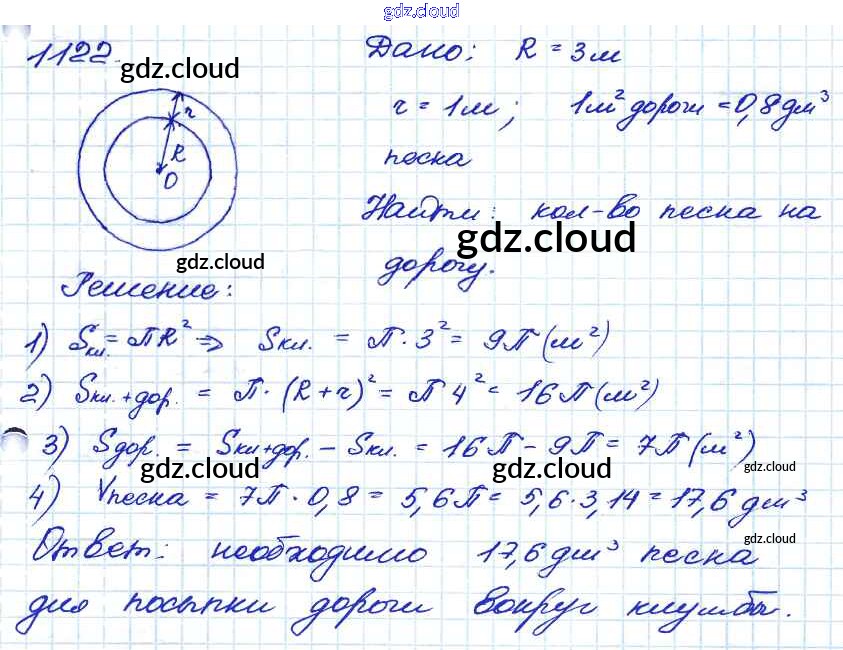 gdz.cloud
1122. gdz.cloud Дано: R = 3м
r = 1м; 1м² дороги = 0,8 дм³
r
R
O
песка
Найти: кол-во песка на
gdz.cloud
gdz.cloud дорогу.
Решение:
1) Sкл. = πR² => Sкл. = π · 3² = 9π (м²)
2) Sкл.+дор. = π · (R + r)² = π 4² = 16π (м²)
3) Sдор. = Sкл+дор. - Sкл. = 16π - 9π = 7π (м²)
gdz.cloud gdz.cloud gdz.cloud
4) Vпеска = 7π · 0,8 = 5,6π = 5,6 · 3,14 = 17,6 дм³
gdz.cloud
Ответ: необходимо 17,6 дм³ песка
для посыпки дороги вокруг клумбы.